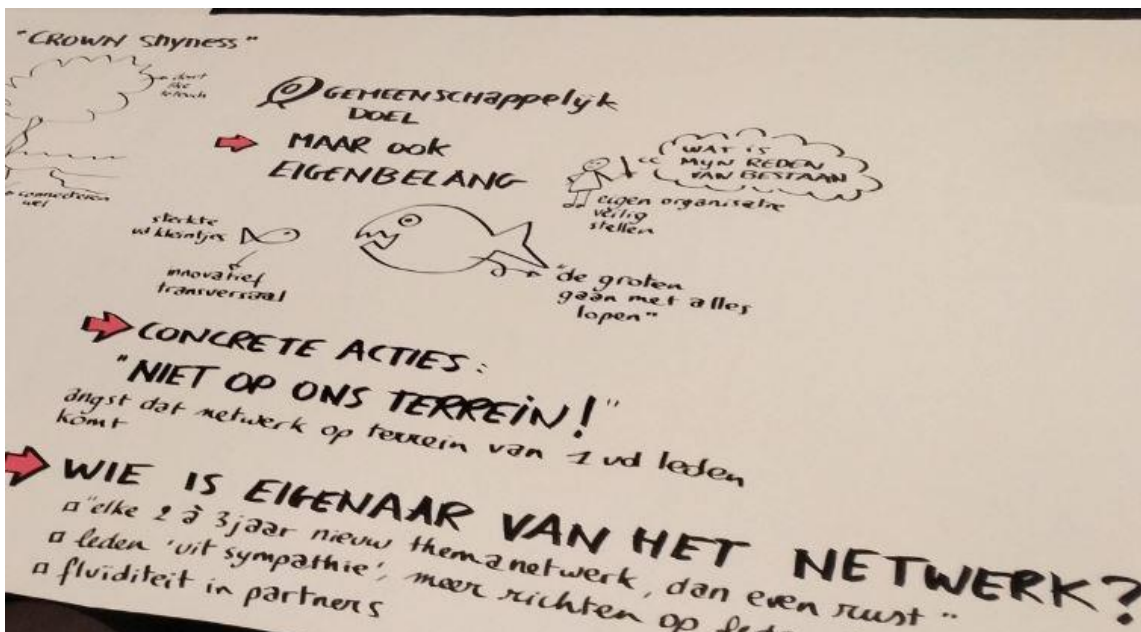 "CROWN shyness"
don't
like
to touch
connecteren
wel
GEMEENSCHAPPELIJK
DOEL
MAAR OOK
EIGENBELANG
WAT IS
MIJN REDEN
VAN BESTAAN
eigen organisatie
veilig
stellen
sterkte
vd kleintjes
innovatief
transversaal
"de groten
gaan met alles
lopen"
CONCRETE ACTIES:
"NIET OP ONS TERREIN!"
angst dat netwerk op terrein van 1 vd leden
komt
WIE IS EIGENAAR VAN HET NETWERK?
"elke 2 à 3 jaar nieuw themanetwerk, dan even rust"
leden 'uit sympathie', meer richten op
fluïditeit in partners